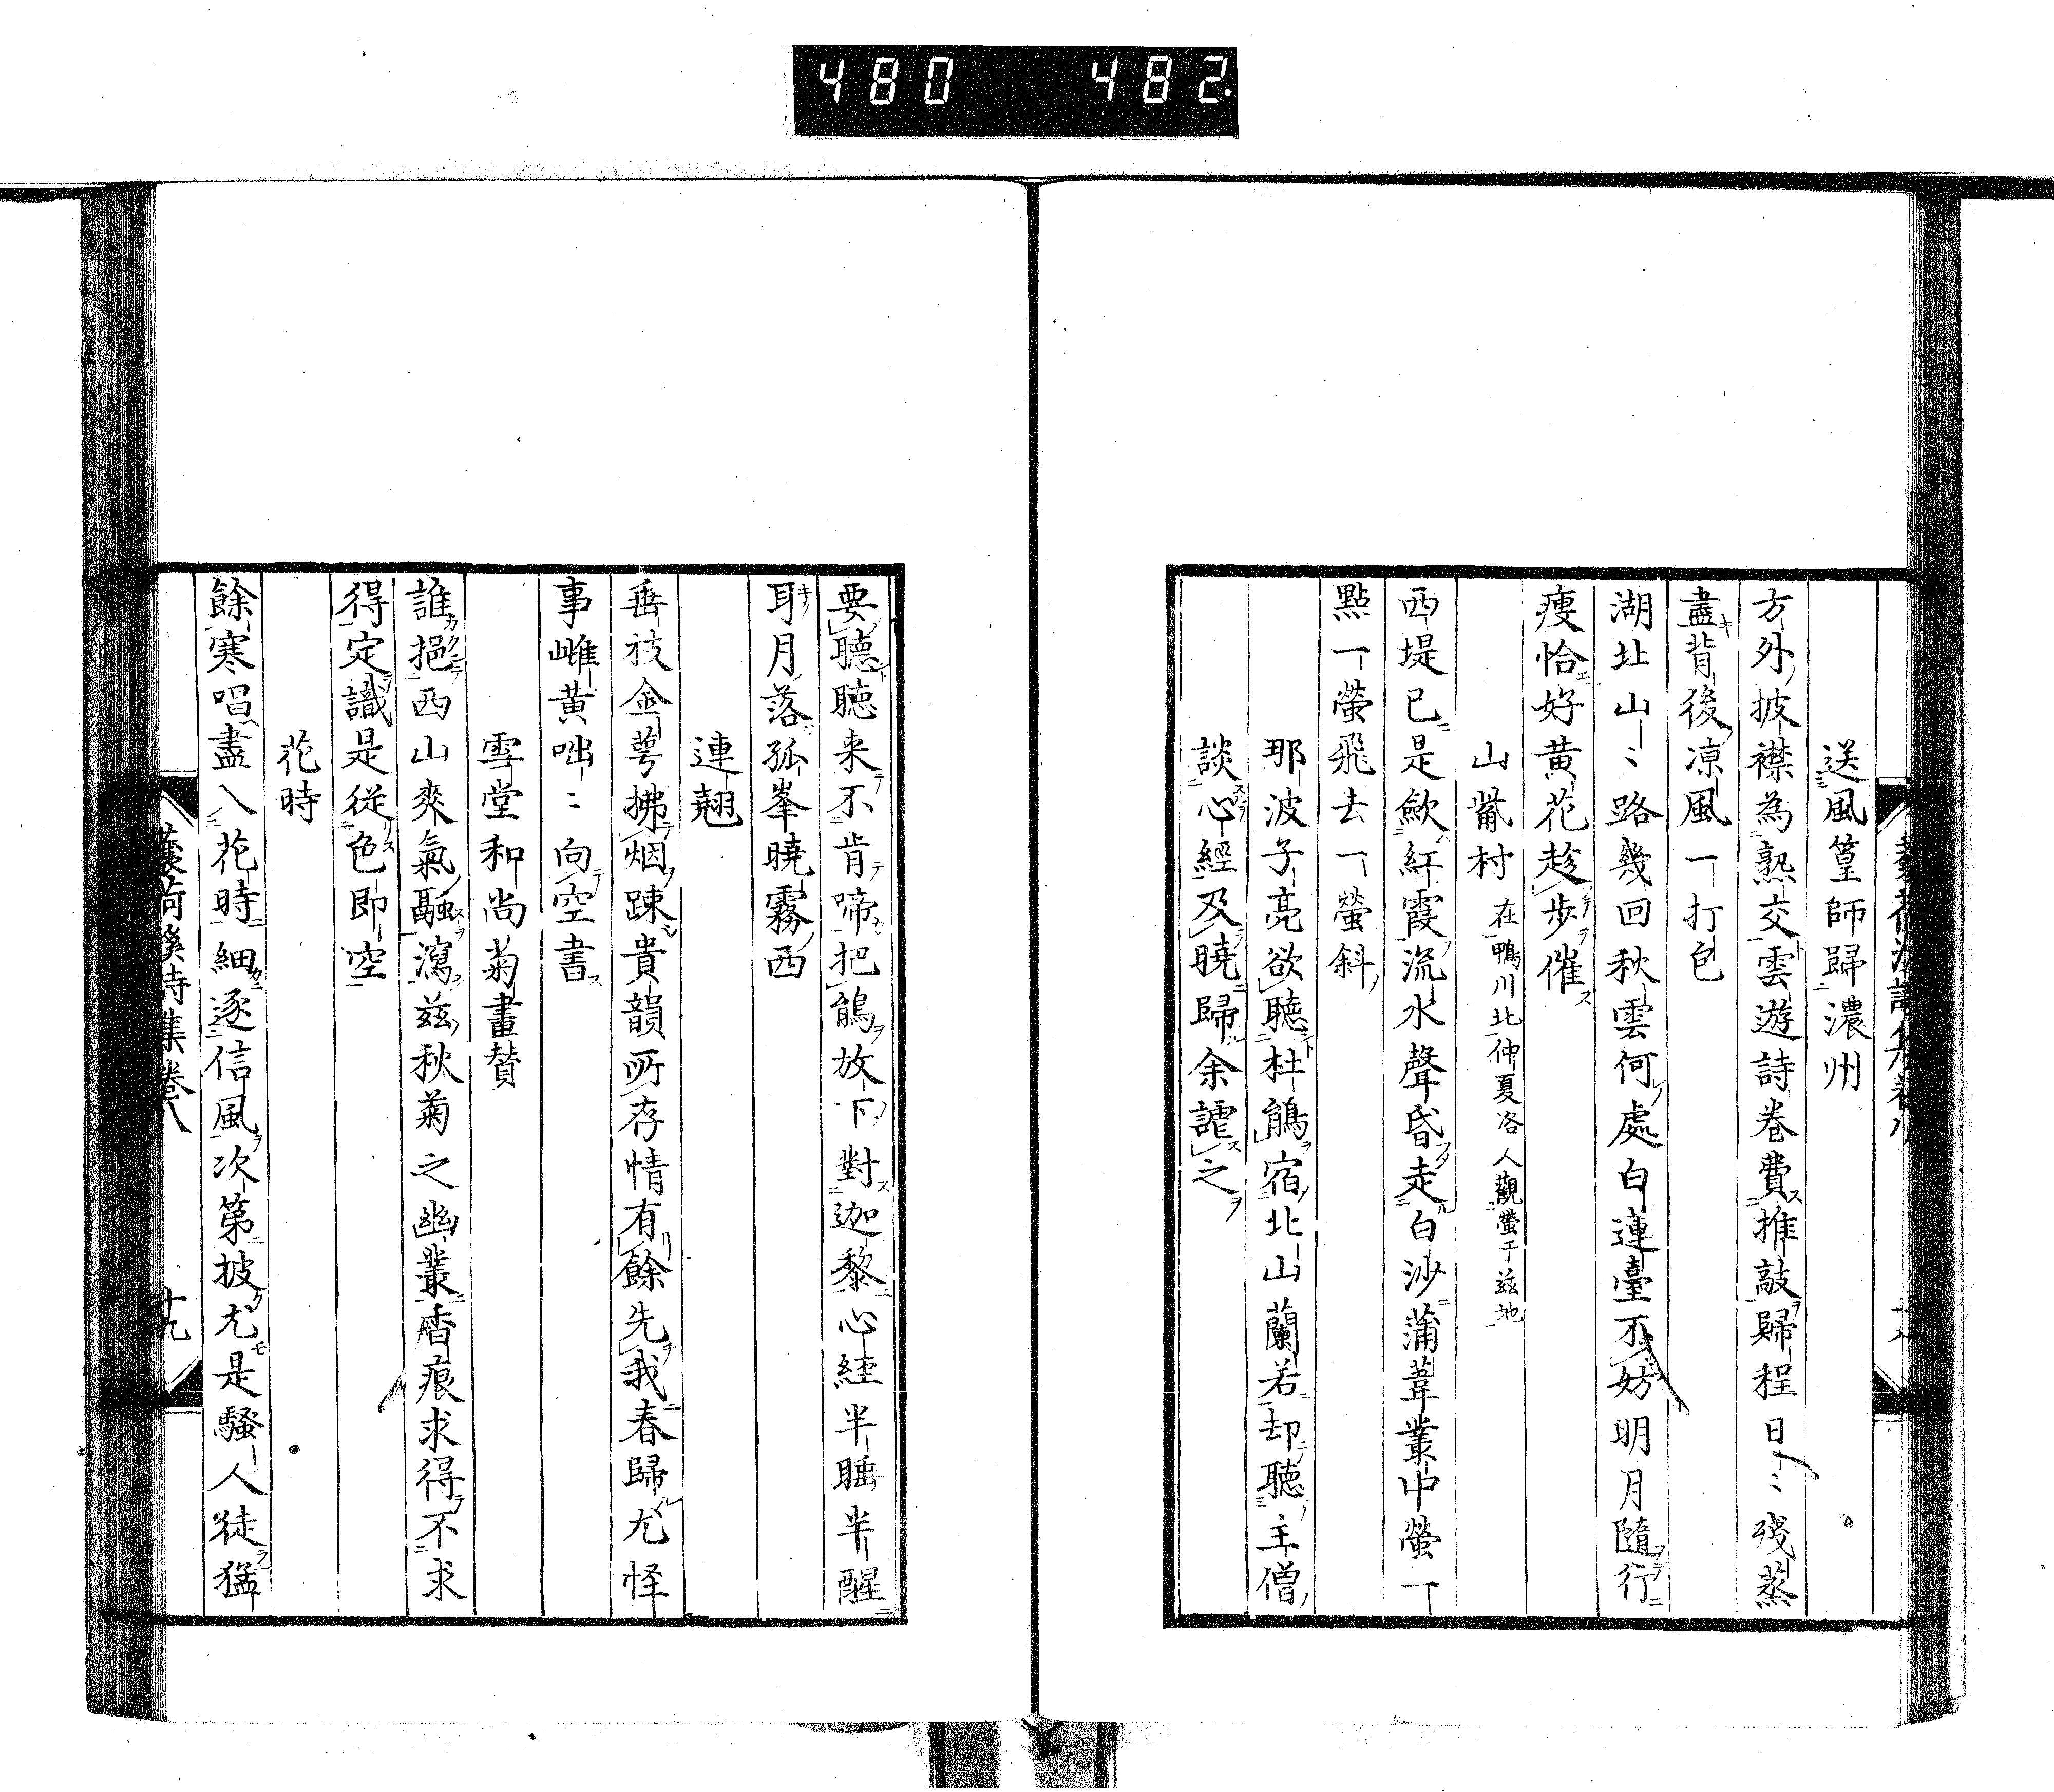 480 482.
送風篁師歸濃州
方外披襟為熟交雲遊詩卷費推敲歸程日〻殘蒸
盡背後凉風一打包
湖北山〻路幾回秋雲何處白連臺不妨明月隨行
瘦恰好黄花趁步催
山鼻村 在鴨川北仲夏洛人觀螢于茲地
西堤已是歛紅霞流水聲昏走白沙蒲葦叢中螢一
點一螢飛去一螢斜
那波子亮欲聽杜鵑宿北山蘭若却聽主僧
談心經及曉歸余謔之
要聽聽来不肯啼把鵑放下對迦黎心経半睡半醒
耳月落孤峯曉霧西
連翹
垂枝金萼拂烟踈貴韻所存情有餘先我春歸尤怪
事雌黄咄〻向空書
雪堂和尚菊畫賛
誰挹西山爽氣融瀉茲秋菊之幽叢香痕求得不求
得定識是従色即空
花時
餘寒唱盡入花時細逐信風次第披尤是騷人徒猛
詩集卷八 十九